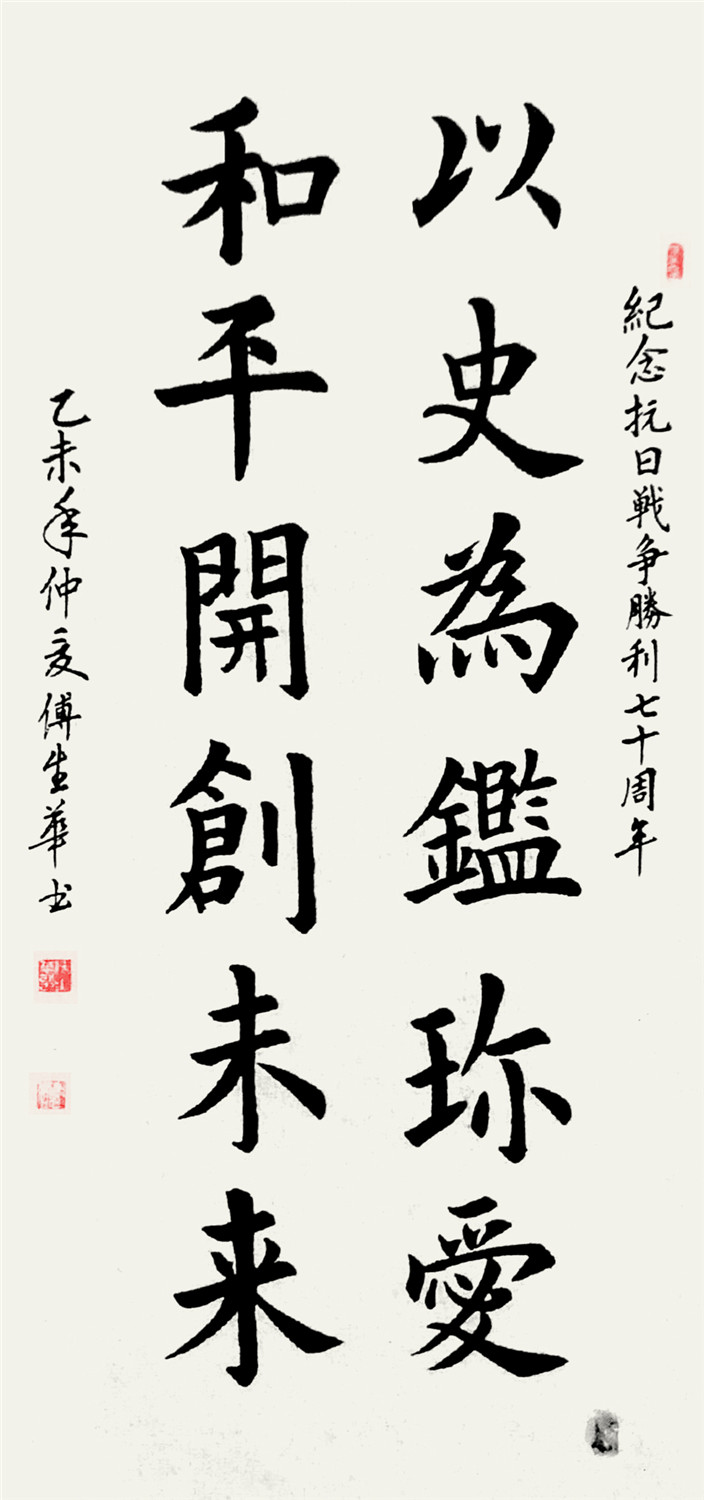 紀念抗日戦争勝利七十周年
以史為鑑珍愛
和平開創未来
乙未年仲夏傅生華书